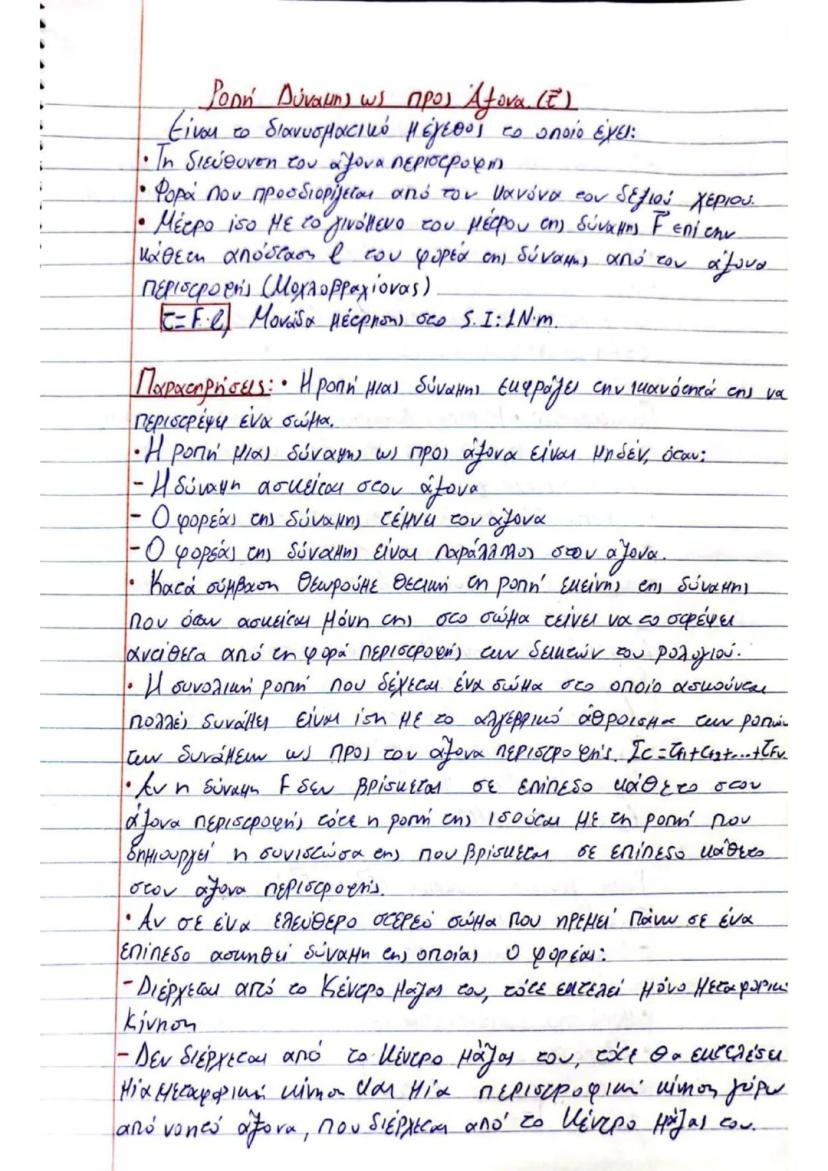 Ροπή Δύναμης ως προς Άξονα (τ)
Είναι το διανυσματικό μέγεθος το οποίο έχει:
• Τη διεύθυνση του άξονα περιστροφής
• Φορά που προσδιορίζεται από τον κανόνα του δεξιού χεριού.
• Μέτρο ίσο με το γινόμενο του μέτρου της δύναμης F επί την
κάθετη απόσταση l του φορέα της δύναμης από τον άξονα
περιστροφής (Μοχλοβραχίονας)
τ=F·l, Μονάδα μέτρησης στο S.I: 1N·m.
Παρατηρήσεις: • Η ροπή μιας δύναμης εκφράζει την ικανότητά της να
περιστρέψει ένα σώμα.
• Η ροπή μιας δύναμης ως προς άξονα είναι μηδέν, όταν:
- Η δύναμη ασκείται στον άξονα
- Ο φορέας της δύναμης τέμνει τον άξονα
- Ο φορέας της δύναμης είναι παράλληλος στον άξονα.
• Κατά σύμβαση θεωρούμε θετική τη ροπή εκείνης της δύναμης
που όταν ασκείται μόνη της στο σώμα τείνει να το στρέψει
αντίθετα από τη φορά περιστροφής των δεικτών του ρολογιού.
• Η συνολική ροπή που δέχεται ένα σώμα στο οποίο ασκούνται
πολλές δυνάμεις είναι ίση με το αλγεβρικό άθροισμα των ροπών
των δυνάμεων ως προς τον άξονα περιστροφής. Στ=τF1+τF2+...+τFν
• Αν η δύναμη F δεν βρίσκεται σε επίπεδο κάθετο στον
άξονα περιστροφής τότε η ροπή της ισούται με τη ροπή που
δημιουργεί η συνιστώσα της που βρίσκεται σε επίπεδο κάθετο
στον άξονα περιστροφής.
• Αν σε ένα ελεύθερο στερεό σώμα που ηρεμεί πάνω σε ένα
επίπεδο ασκηθεί δύναμη της οποίας ο φορέας:
- Διέρχεται από το Κέντρο μάζας του, τότε εκτελεί μόνο μεταφορική
Κίνηση
- Δεν διέρχεται από το Κέντρο μάζας του, τότε θα εκτελέσει
μία μεταφορική κίνηση και μία περιστροφική κίνηση γύρω
από νοητό άξονα, που διέρχεται από το Κέντρο μάζας του.